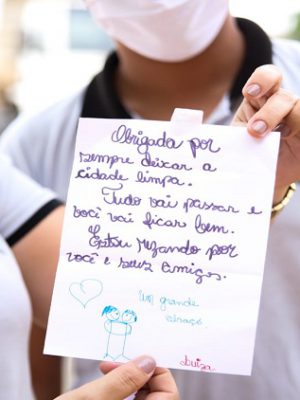 Obrigada por
sempre deixar a
cidade limpa.
Tudo vai passar e
você vai ficar bem.
Estou rezando por
você e seus amigos.
Um grande
abraço
Luiza